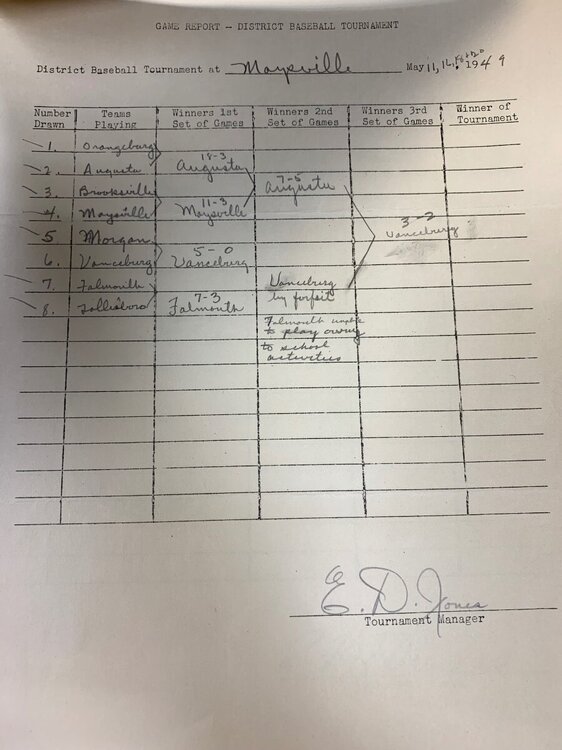 GAME REPORT -- DISTRICT BASEBALL TOURNAMENT
District Baseball Tournament at Maysville May 11, 1949
Number Drawn Teams Playing Winners 1st Set of Games Winners 2nd Set of Games Winners 3rd Set of Games Winner of Tournament
1. Orangeburg
18-3
2. Augusta Augusta
7-5
3. Brooksville Augusta
11-3
4. Maysville Maysville
3-2
5. Morgan Vanceburg
5-0
6. Vanceburg Vanceburg
7. Falmouth Vanceburg
7-3 by forfeit
8. Tollesboro Falmouth
Falmouth unable
to play owing
to school
activities
E. D. Jones
Tournament Manager